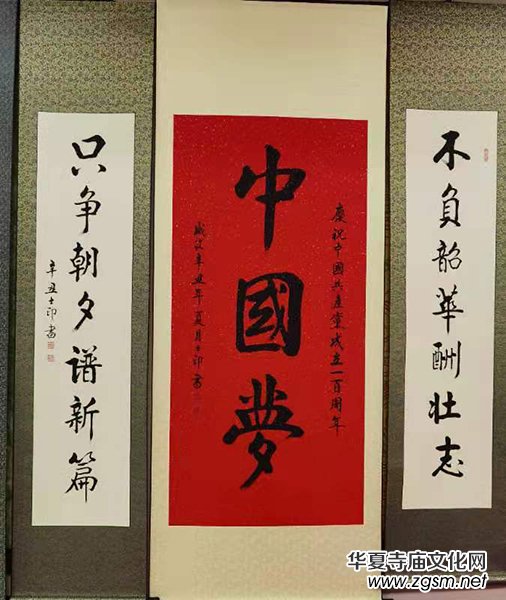 不负韶華酬壮志
慶祝中國共産黨成立一百周年
中國夢
歲次辛丑年夏月士印書
只争朝夕谱新篇
辛丑士印書
华夏寺庙文化网
www.zgsm.net